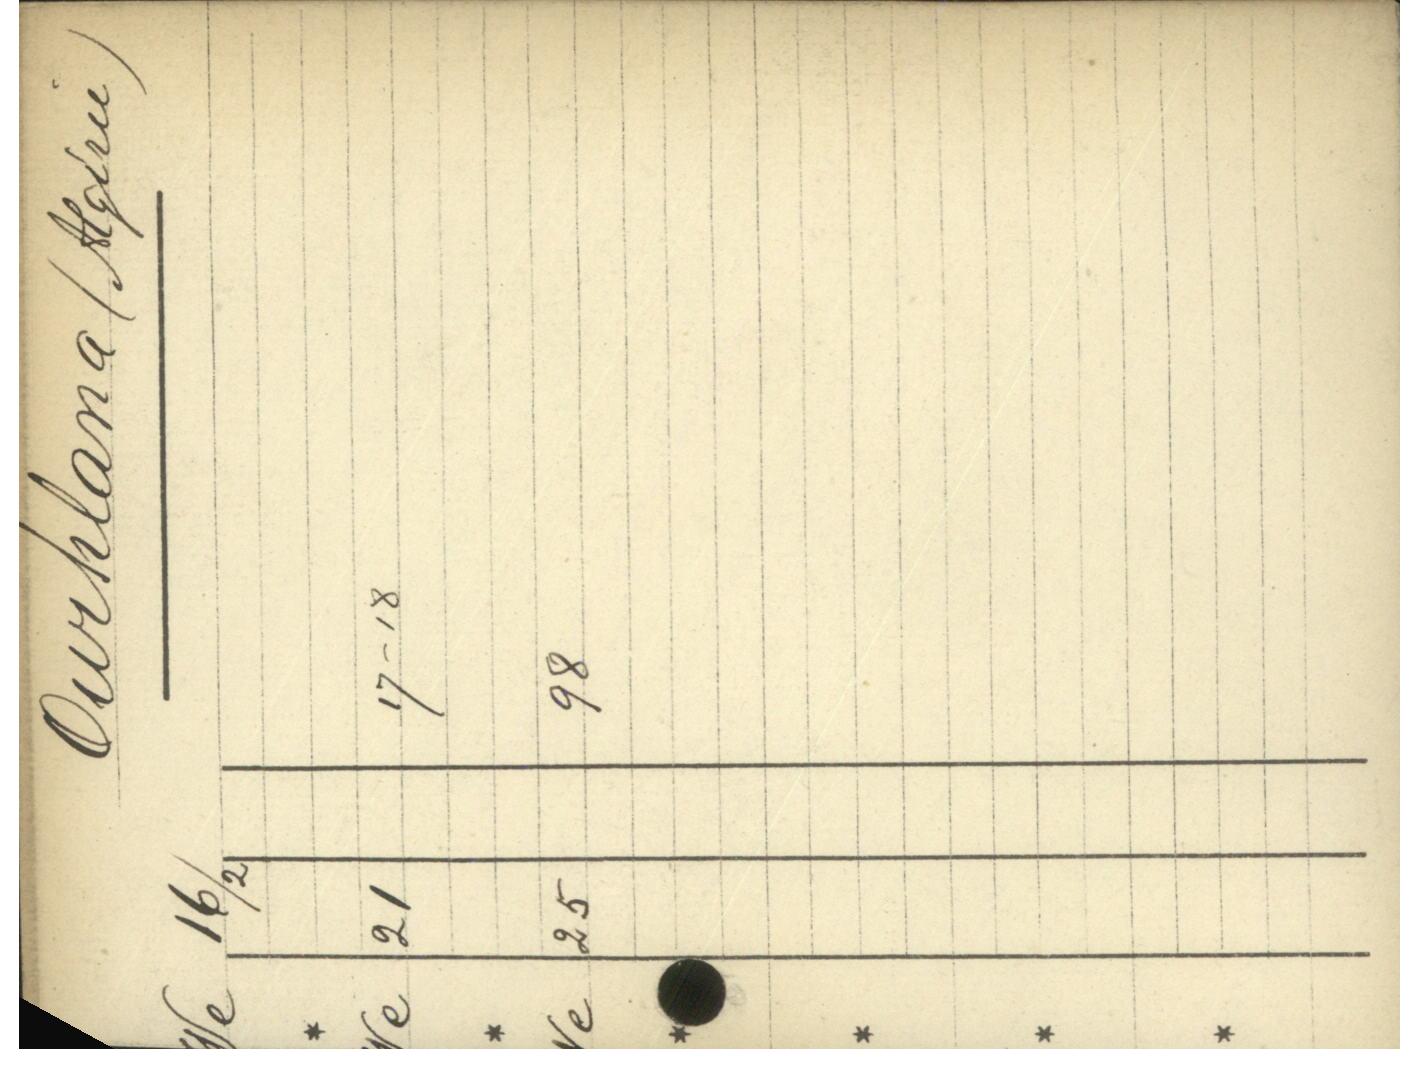 Ourhlana (Algérie)
Ne 16/2
*
Ne 21 17-18
*
Ne 25 98
*
*
*
*